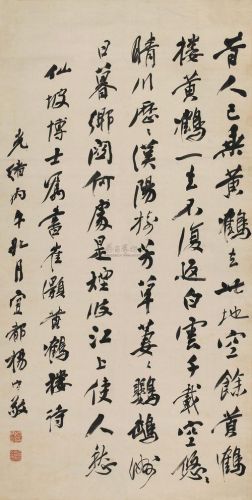 昔人已乘黄鶴去此地空餘黄鶴
楼黄鶴一去不復返白雲千載空悠〻
晴川歷〻漢陽樹芳草萋〻鸚鵡洲
日暮鄉関何處是煙波江上使人愁
仙坡博士屬書崔灝黄鶴楼詩
光緒丙午九月宜都楊守敬